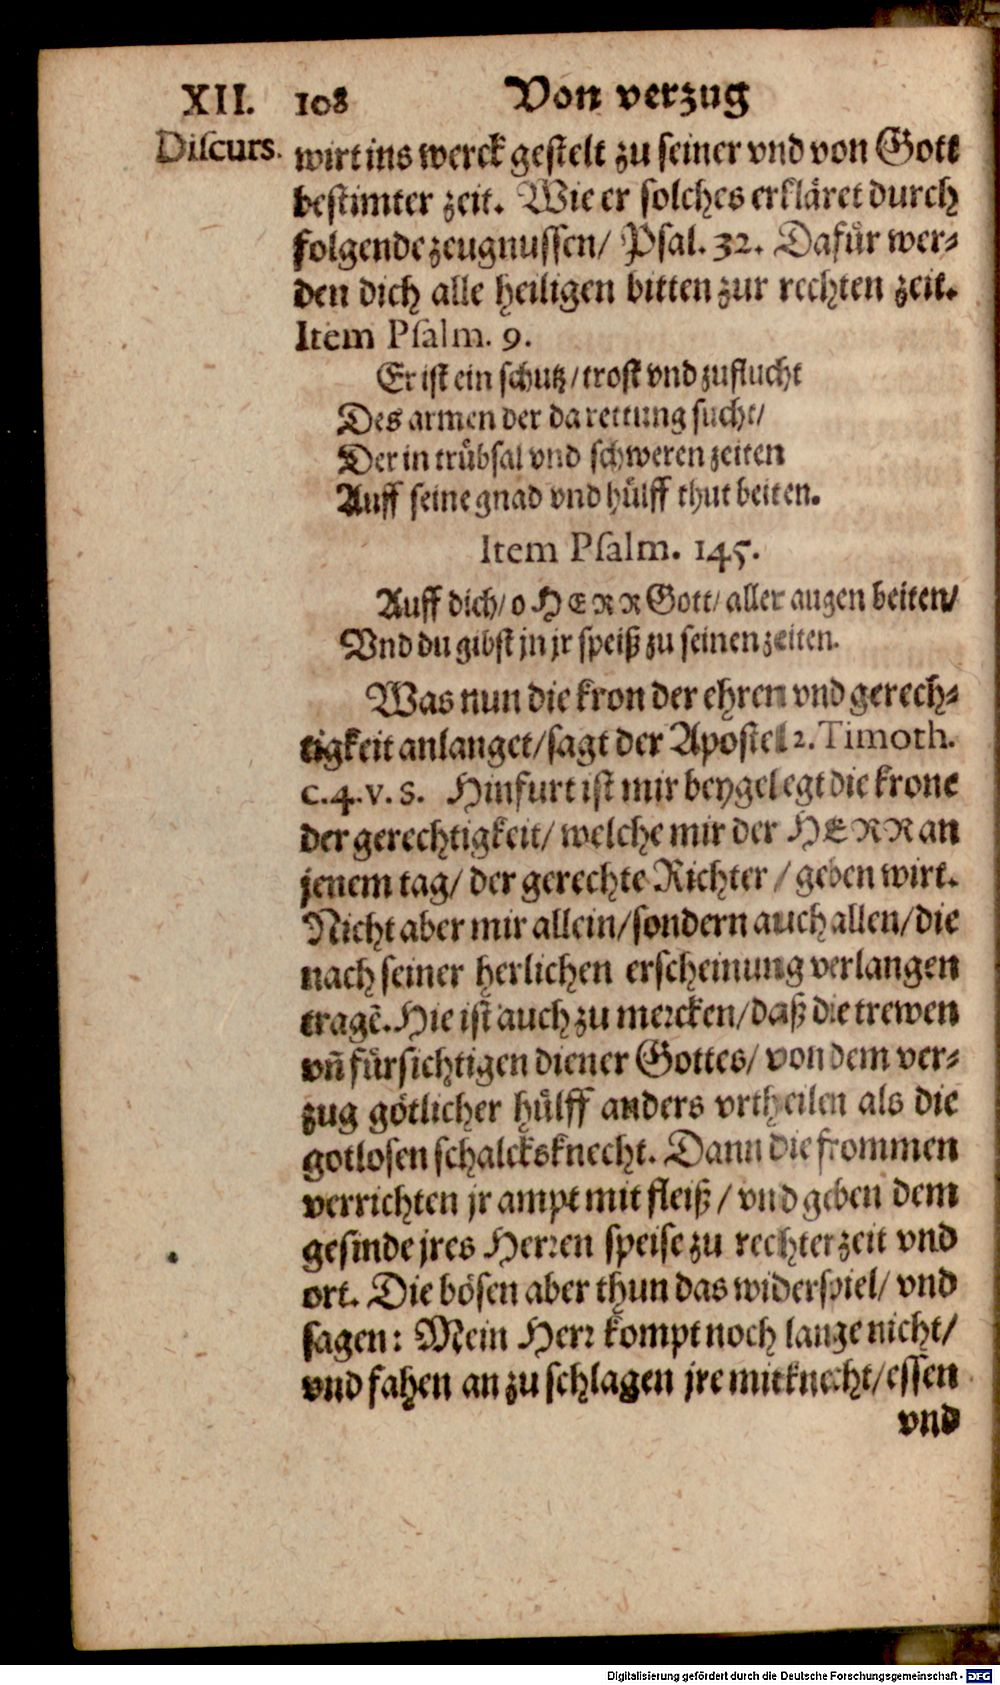 XII. 108 Von verzug
Diſcurs.
wirt ins werck geſtelt zu ſeiner vnd von Gott
beſtimter zeit. Wie er ſolches erkläret durch
folgende zeugnuſſen/ Pſal. 32. Dafuͤr wer⸗
den dich alle heiligen bitten zur rechten zeit.
Item Pſalm. 9.
Er iſt ein ſchutz/ troſt vnd zuflucht
Des armen der da rettung ſucht/
Der in truͤbſal vnd ſchweren zeiten
Auff ſeine gnad vnd huͤlff thut beiten.
Item Pſalm. 145.
Auff dich/ o HERR Gott/ aller augen beiten/
Vnd du gibſt jn jr ſpeiß zu ſeinen zeiten.
Was nun die kron der ehren vnd gerech⸗
tigkeit anlanget/ ſagt der Apoſtel 2. Timoth.
c. 4. v. 8. Hinfurt iſt mir beygelegt die krone
der gerechtigkeit/ welche mir der HERR an
jenem tag/ der gerechte Richter/ geben wirt.
Nicht aber mir allein/ ſondern auch allen/ die
nach ſeiner herlichen erſcheinung verlangen
tragẽ. Hie iſt auch zu mercken/ daß die trewen
vñ fuͤrſichtigen diener Gottes/ von dem ver⸗
zug goͤtlicher huͤlff anders vrtheilen als die
gotloſen ſchalcksknecht. Dann die frommen
verrichten jr ampt mit fleiß/ vnd geben dem
geſinde jres Herren ſpeiſe zu rechter zeit vnd
ort. Die boͤſen aber thun das widerſpiel/ vnd
ſagen: Mein Herr kompt noch lange nicht/
vnd fahen an zu ſchlagen jre mitknecht/ eſſen
vnd
Digitalisierung gefördert durch die Deutsche Forschungsgemeinschaft - DFG